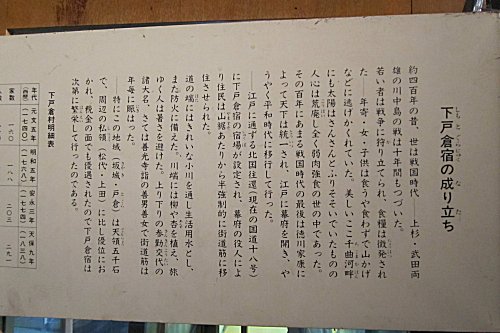 下戸倉宿の成り立ち
しもとぐらじゅく な た
約四百年の昔、世は戦国時代 上杉・武田両
雄の川中島の戦は十年間もつづいた。
若い者は戦争に狩り立てられ、食糧は徴発され
た。年寄・女・子供は食うや食わずで山かげ
などに逃げかくれていた。美しいここ千曲河畔
にも太陽はさんさんとふりそそいでいたものの
人心は荒廃し全く弱肉強食の世の中であった。
その百年にあまる戦国時代の最後は徳川家康に
よって天下は統一され、江戸に幕府を開き、や
うやく平和時代に移行して行った。
江戸に通ずる北国往還(現在の国道十八号)
に下戸倉宿の宿場が設定され、幕府の役人によ
り住民は山裾あたりから半強制的に街道筋に移
住させられた。
道の端にはきれいな小川を通し生活用水とし、
また防火に備えた。川端には柳や杏を植え、旅
ゆく人は暑さを避けた。上り下りの参勤交代の
諸大名、さては善光寺詣の善男善女で街道筋は
年毎に賑はった。
特にこの地域(坂城・戸倉)は天領五千石
で、周辺の私領(松代・上田)に比し優位にお
かれ、税金の面でも優遇されたので下戸倉宿は
次第に繁栄して行ったのである。
下戸倉村明細表
年代 元文五年(一七四〇) 明和五年(一七六八) 安永三年(一七七四) 天保九年(一八三八)
家数 一六〇 一八八 二〇三 二九一